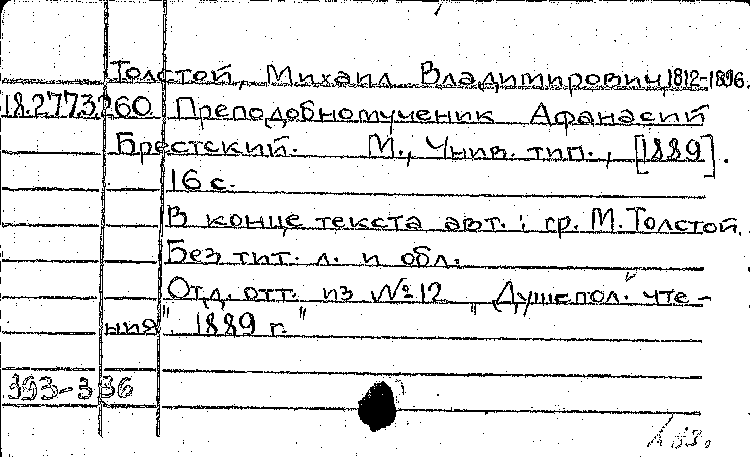 Толстой, Михаил Владимирович, 1812-1896.
18.277.3.260. Преподобномученик Афанасий
Брестский. М., Унив. тип., [1889].
16 с.
В конце текста авт.: гр. М. Толстой.
Без тит. л. и обл.
Отд. отт. из №12 "Душепол. чте-
ния". 1889 г."
393-336